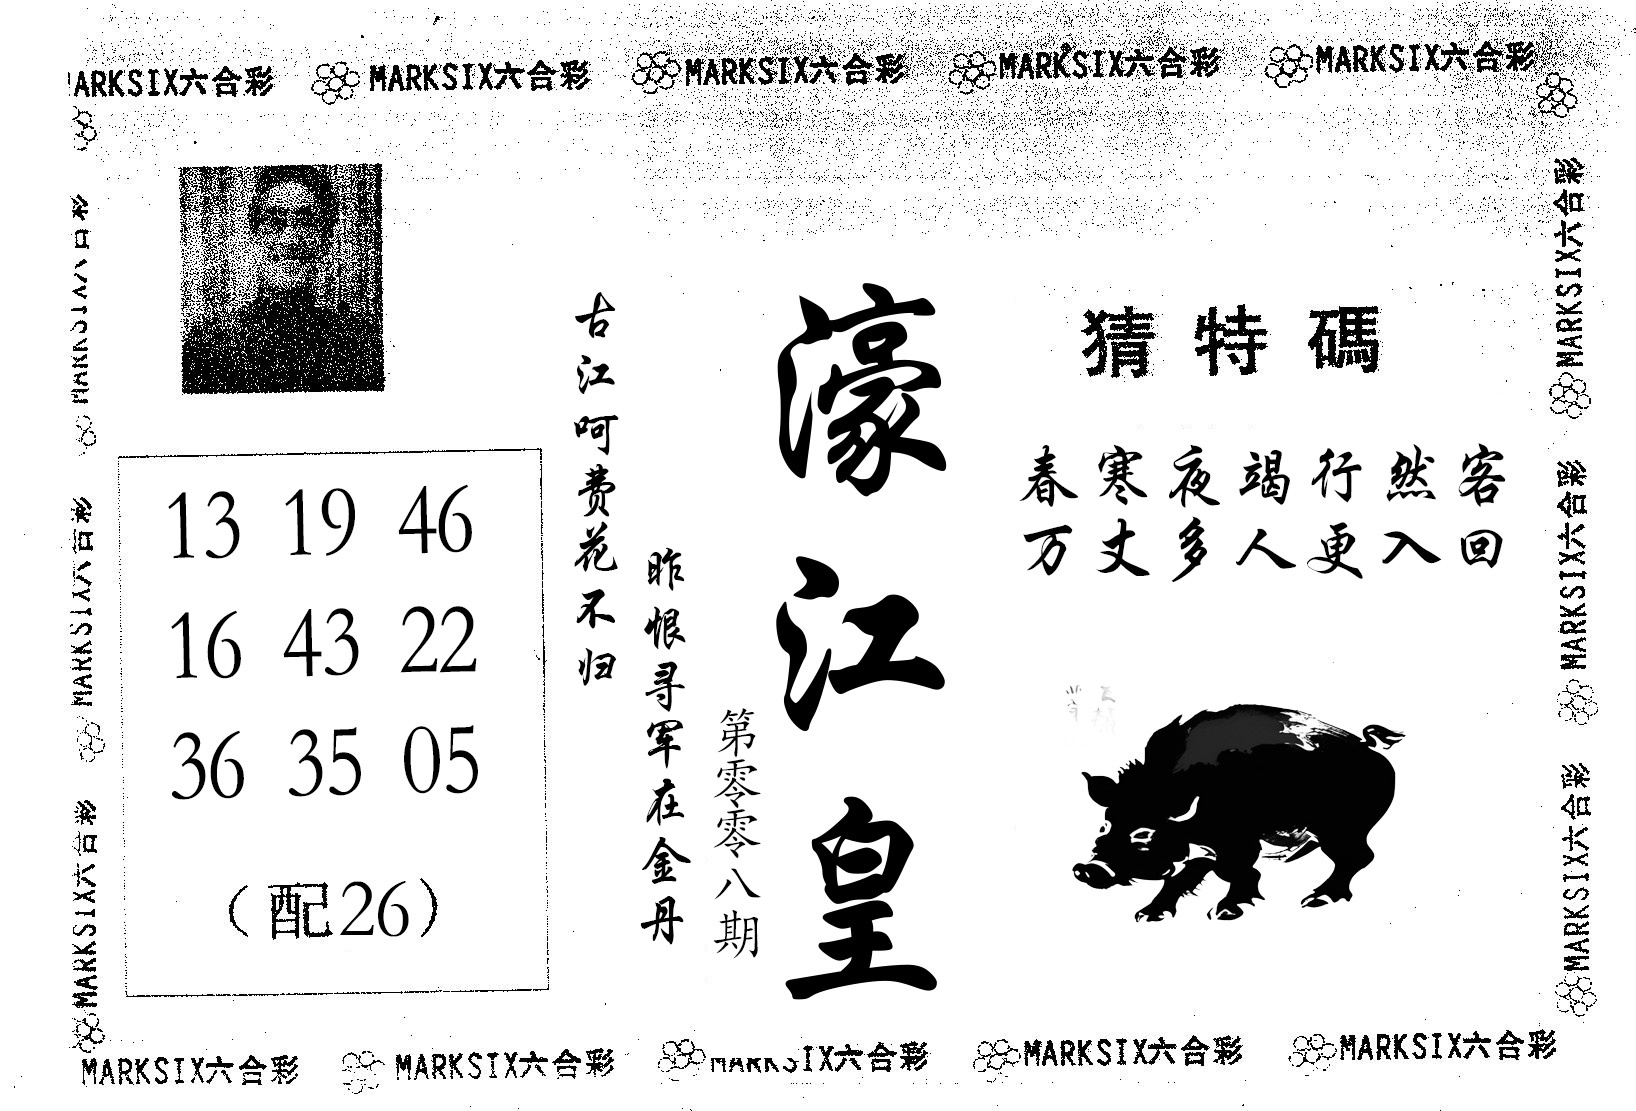 MARKSIX六合彩 MARKSIX六合彩 MARKSIX六合彩 MARKSIX六合彩 MARKSIX六合彩
MARKSIX六合彩
MARKSIX六合彩
MARKSIX六合彩
猜特碼
春寒夜竭行然客
万丈多人更入回
濠江皇
第零零八期
古江呵费花不归
昨恨寻军在金丹
13 19 46
16 43 22
36 35 05
（配26）
MARKSIX六合彩
MARKSIX六合彩
MARKSIX六合彩
MARKSIX六合彩 MARKSIX六合彩 MARKSIX六合彩 MARKSIX六合彩 MARKSIX六合彩